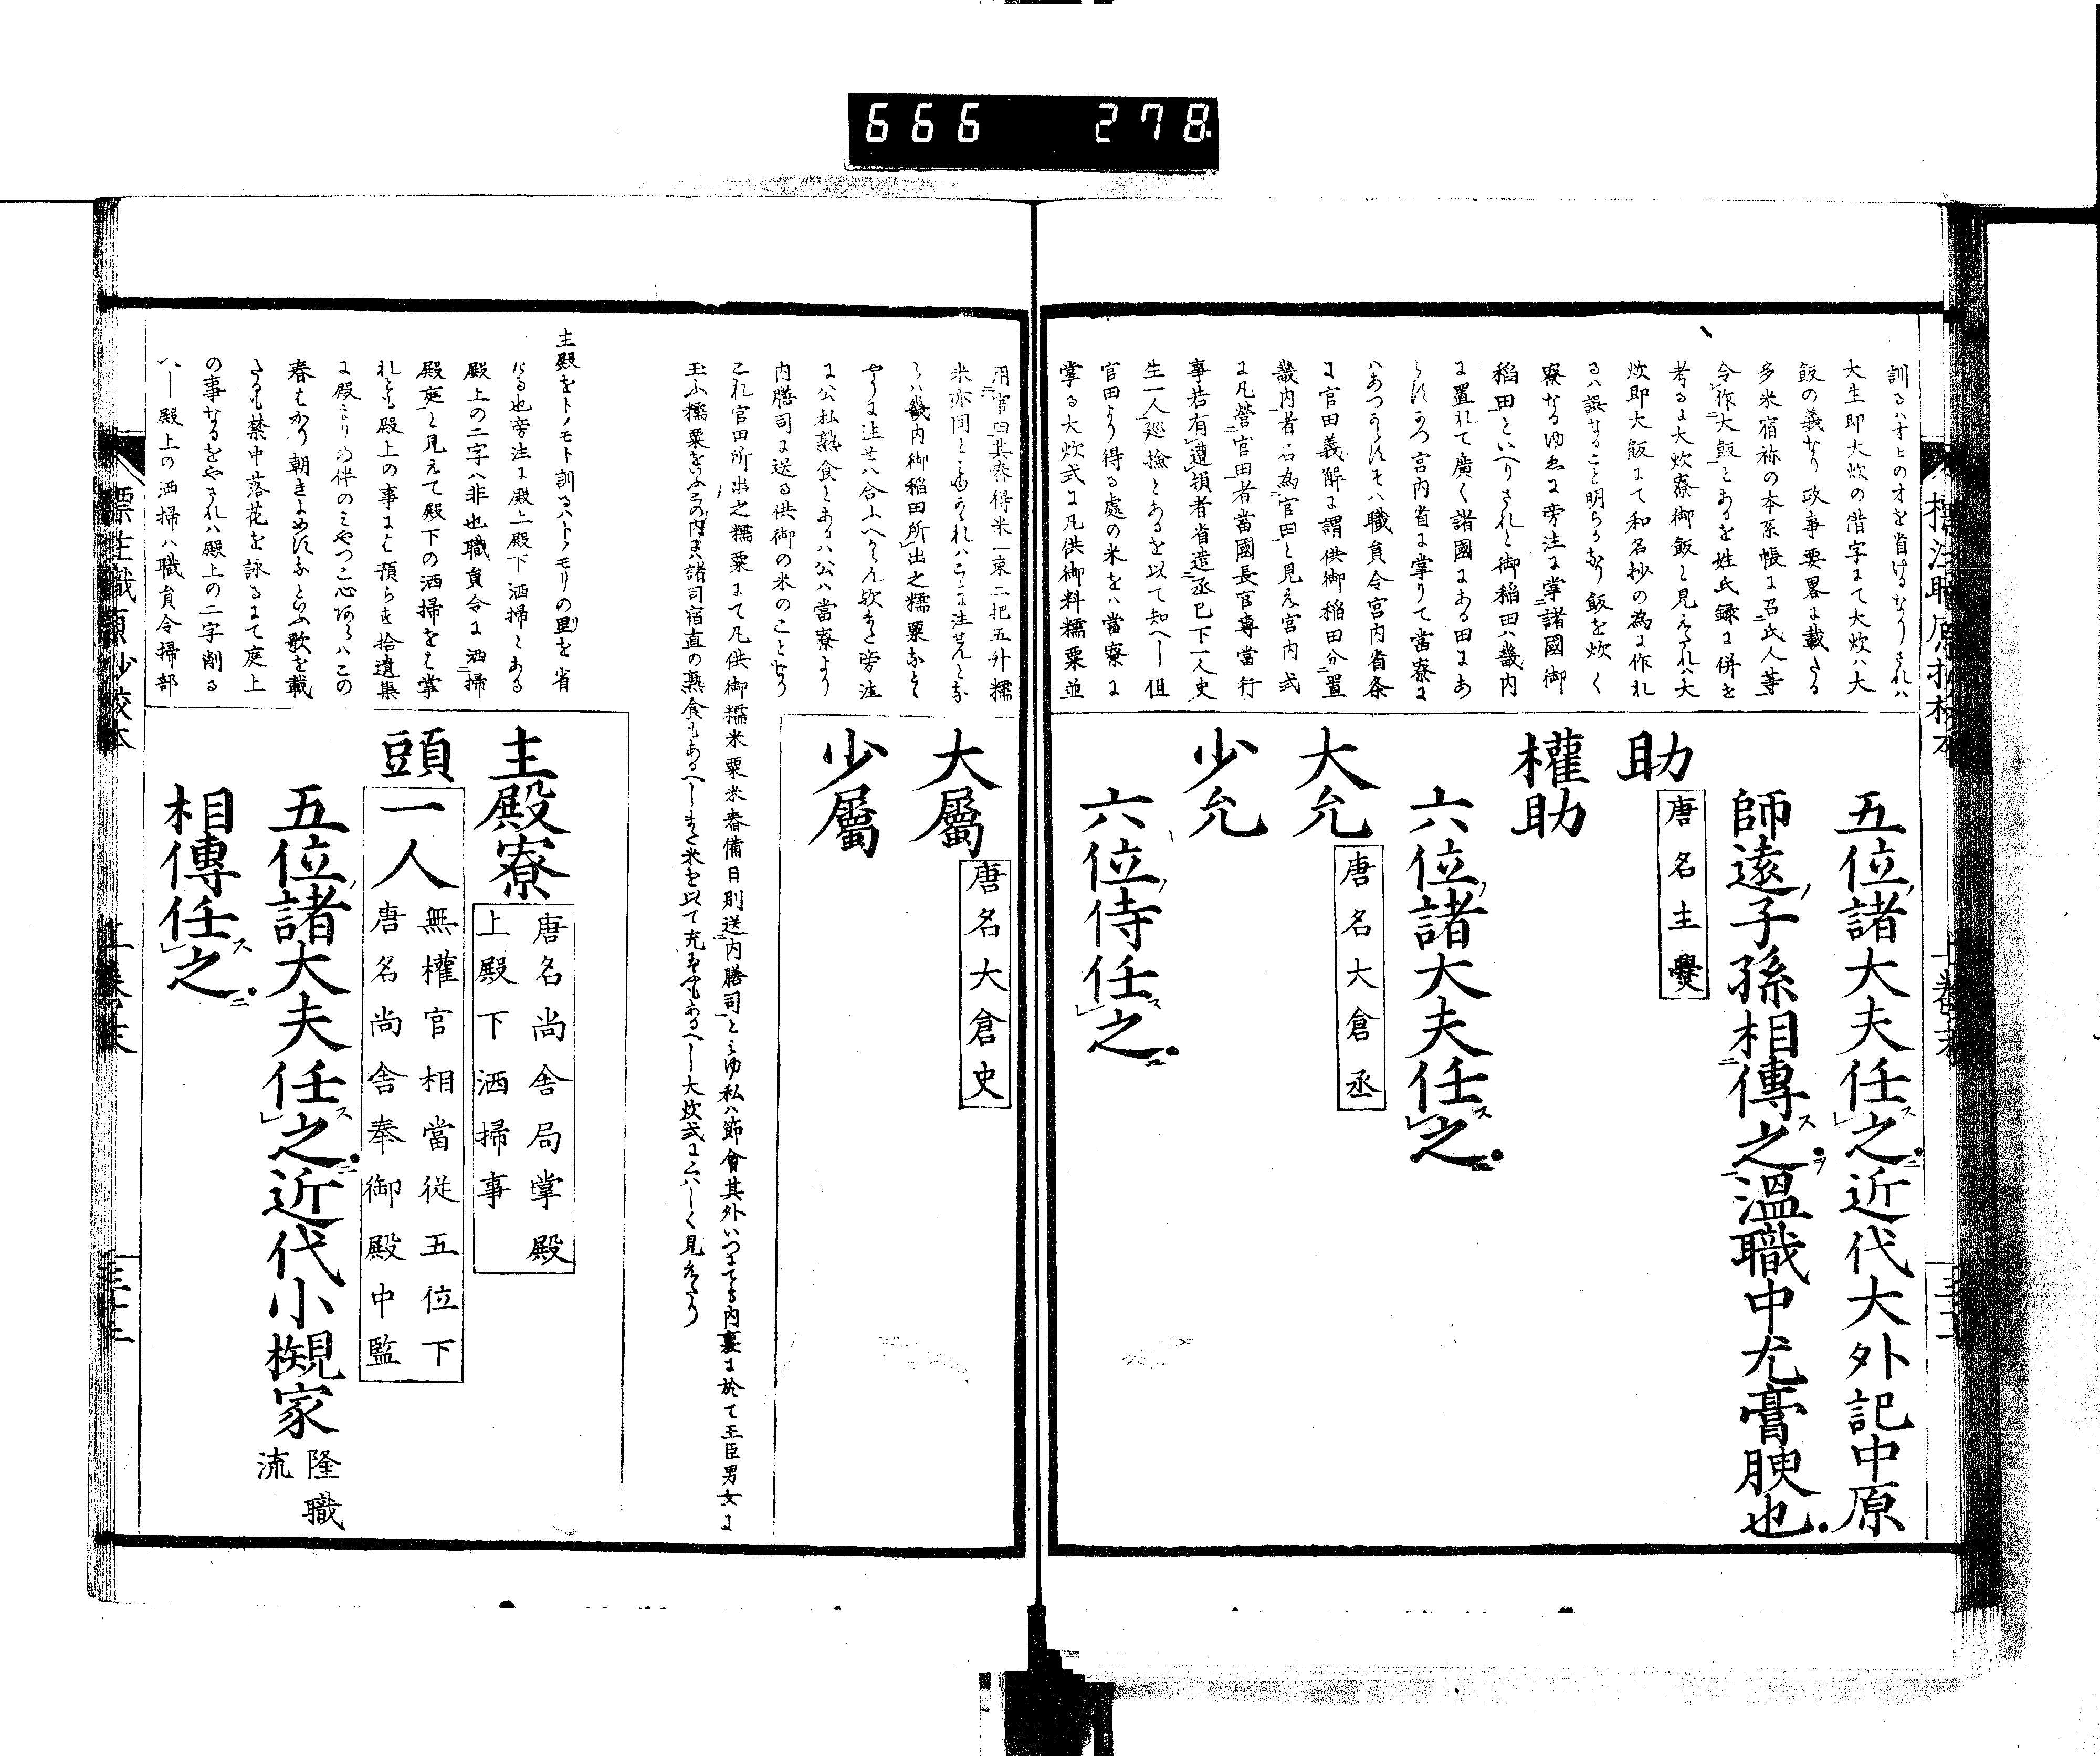 666 278
訓るハオヒのオを省けるなりされハ
大生即大炊の借字にて大炊ハ大
飯の義なり政事要畧に載たる
多米宿祢の本系帳に召氏人等
令作大飯とあるを姓氏録に併せ
考るに大炊寮御飯と見えたれハ大
炊即大飯にて和名抄の為に作れ
るハ誤なること明らけし飯を炊く
寮なるゆゑに旁注に掌諸國御
稲田といへりされと御稲田ハ畿内
に置れて廣く諸國にある田にあ
らす且つ宮内省に掌りて當寮に
ハあつからすそハ職員令宮内省条
に官田義解に謂供御稲田分置
畿内者名為官田と見え宮内式
に凡營官田者當國長官専當行
事若有遭損者省遣丞已下一人史
生一人廵撿とあるを以て知へし但
官田より得る處の米をハ當寮に
掌る大炊式に凡供御料糯粟並
五位諸大夫任之近代大外記中原
師遠子孫相傳之溫職中尤膏腴也
助
唐名主爨
權助
六位諸大夫任之
大允
唐名大倉丞
少允
六位侍任之
用官田其舂得米一束二把五升糯
米亦同とみゆ
らハ畿内御稲田所出之糯粟なとく
やうに注せハ合ふへからん欤また旁注
に公私熟食とあるハ公ハ當寮より
内膳司に送る供御の米のことなり
これ官田所出之糯粟にて凡供御糯米粟米舂備日別送内膳司とみゆ私ハ節會其外いつにても内裏に於て王臣男女に
玉ふ糯粟をいふこの内にハ諸司宿直の熟食もあるへしまた米を以て充るもあるへし大炊式に委しく見えたり
大屬
唐名大倉史
少屬
主殿をトノモト訓るハトノモリの里を省
ける也旁注に殿上殿下洒掃とある
殿上の二字ハ非也職員令に洒掃
殿庭と見えて殿下の洒掃をも掌
れとも殿上の事にハ預らす拾遺集
に殿もりの伴のみやつこ心あらハこの
春はかり朝きよめすなといふ歌を載
たるも禁中落花を詠るにて庭上
の事なるをやされハ殿上の二字削る
へし殿上の洒掃ハ職員令掃部
主殿寮
唐名尚舎局掌殿
上殿下洒掃事
頭
一人
無權官相當従五位下
唐名尚舎奉御殿中監
五位諸大夫任之近代小槻家
隆職
流
相傳任之
標注職原抄校本
上巻末